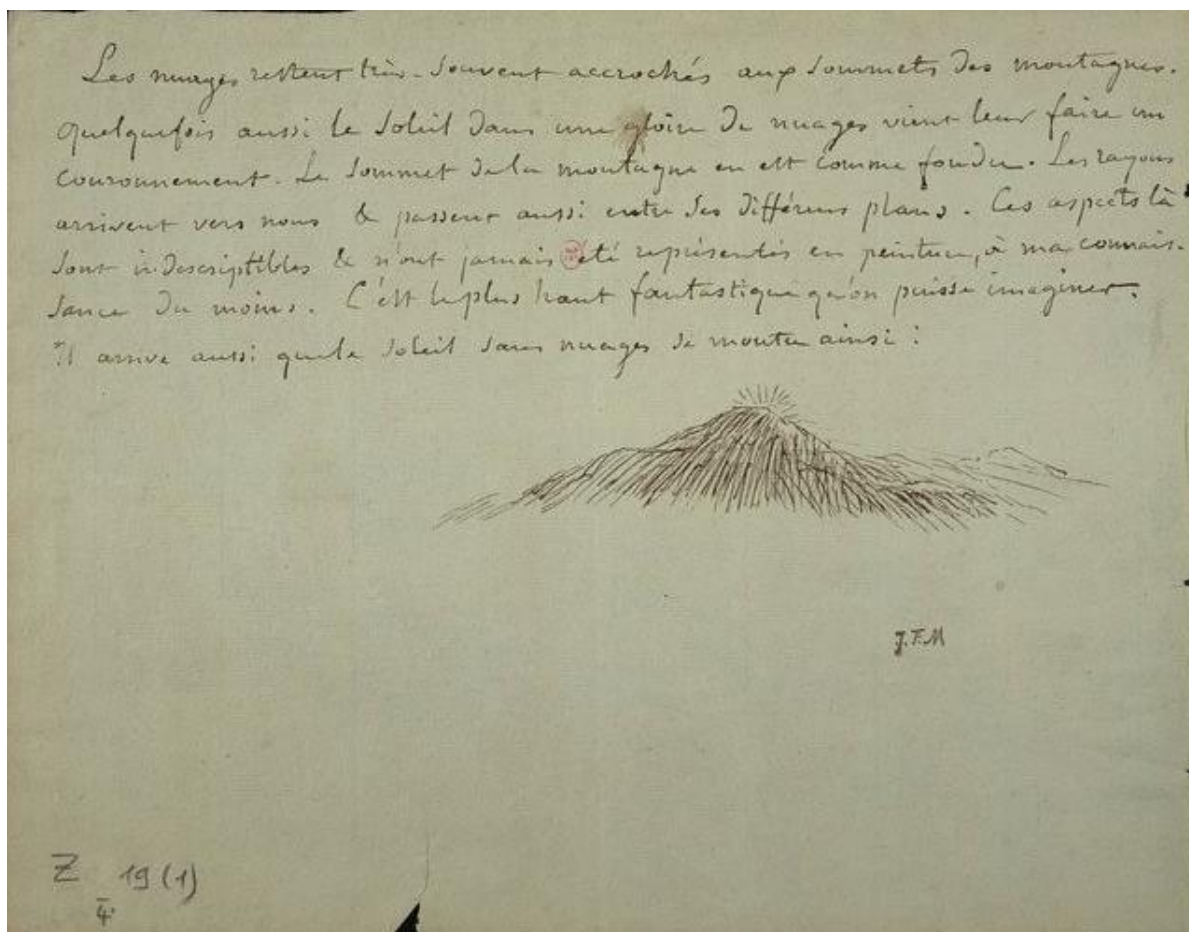 Les nuages restent très-souvent accrochés aux sommets des montagnes.
quelquefois aussi le soleil dans une gloire de nuages vient leur faire un
couronnement. Le sommet de la montagne en est comme fondu. Les rayons
arrivent vers nous & passent aussi entre les différens plans. Ces aspects là
sont indescriptibles & n'ont jamais été représentés en peinture, à ma connais-
sance du moins. C'est le plus haut fantastique qu'on puisse imaginer.
Il arrive aussi que le soleil sans nuages se montre ainsi :
J.F.M
Z 19 (1)
4